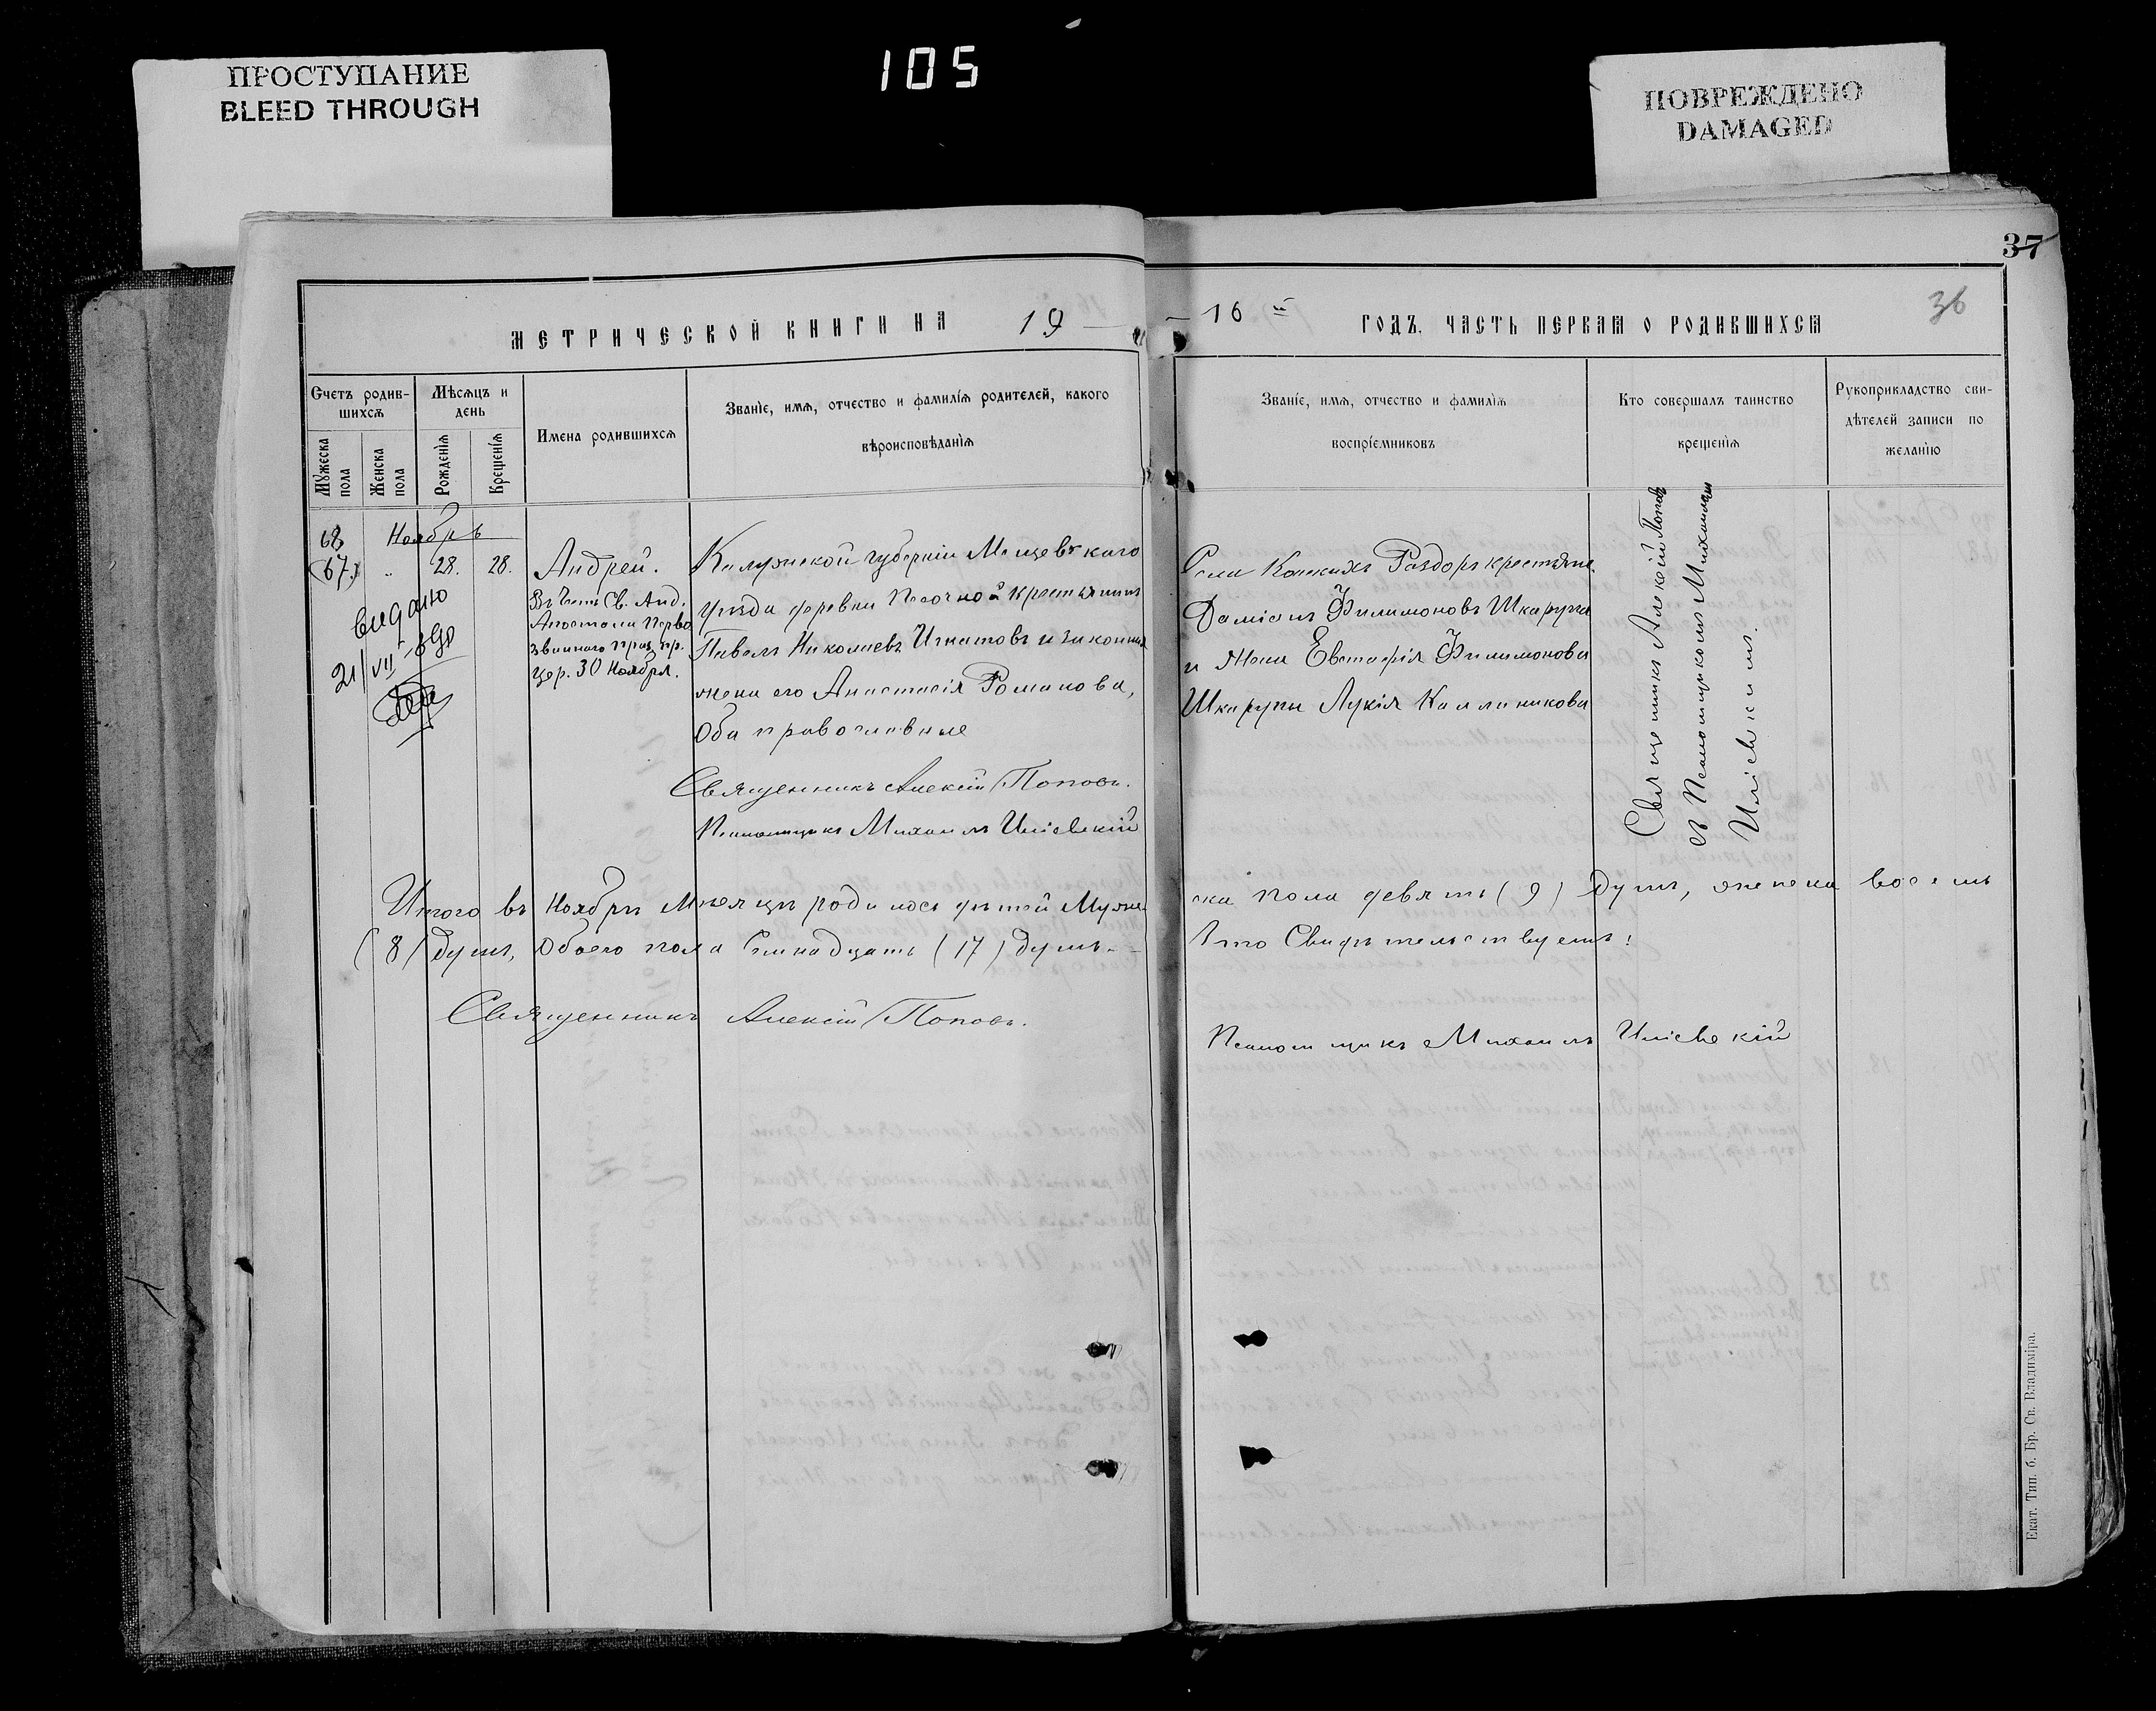 ПРОСТУПАНИЕ
BLEED THROUGH
105
ПОВРЕЖДЕНО
DAMAGED
37
36
МЕТРИЧЕСКОЙ КНИГИ НА 19
16 й ГОДЪ, ЧАСТЬ ПЕРВАѦ О РОДИВШИХСѦ
Счетъ родив-
шихсѧ
Мѣсѧцъ и
день
Мужеска
пола
Женска
пола
Рожденїѧ
Крещенїѧ
Имена родившихсѧ
Званїе, имѧ, отчество и фамилїѧ родителей, какого
вѣроисповѣданїѧ
Званїе, имѧ, отчество и фамилїѧ
воспрїемниковъ
Кто совершалъ таинство
крещенїѧ
Рукоприкладство сви-
дѣтелей записи по
желанїю
68
Ноябрь
(67.) 28. 28.
видано
21/VII
Андрей.
Въ честь Св. Анд.
Апостола Перво
званнаго праз. пр.
цер. 30 Ноября.
Калужской губерніи Мещевскаго
уѣзда деревни Песочной крестьянинъ
Павелъ Николаевъ Игнатовъ и законная
жена его Анастасія Романова,
Оба православные
Священникъ Алексій Поповъ.
Псаломщикъ Михаилъ
Села Раздоръ крестьяне
Даміанъ Филимоновъ Шкарупа
и жена Евстафія Филимонова
Шкарупы Лукія Каллиникова
Священникъ Алексій Поповъ
съ Псаломщикомъ Михаиломъ
Итого въ Ноябрѣ Мѣсяцѣ родилось дѣтей Муже-
ска пола девять (9) душъ, женска восемь
(8) душъ, Обоего пола Семнадцать (17) душъ.
Что Свидѣтельствуемъ:
Священникъ Алексій Поповъ.
Псаломщикъ Михаилъ
Екат. Тип. б. Бр. Св. Владиміра.